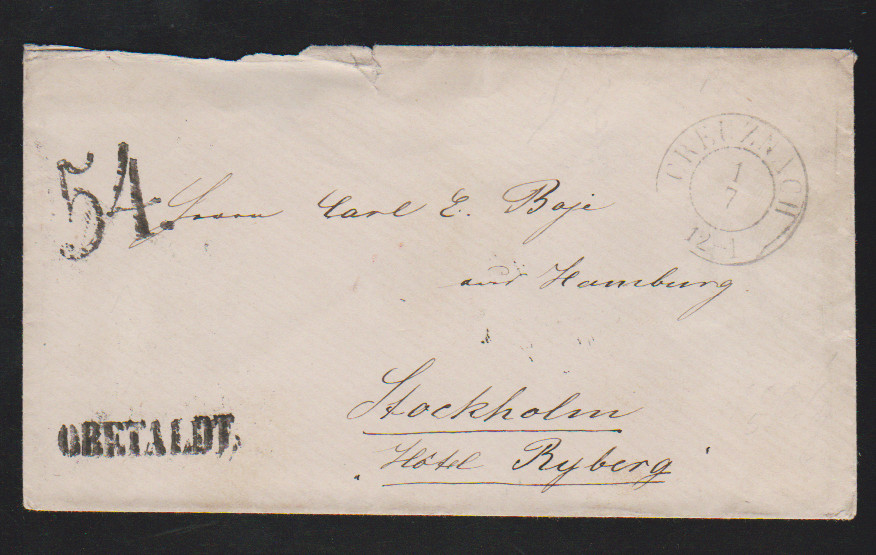 CREUZNACH
1
7
12-1
54.
Herrn Carl E. Boje
aus Hamburg
Stockholm
Hôtel Rydberg
OBETALDT.